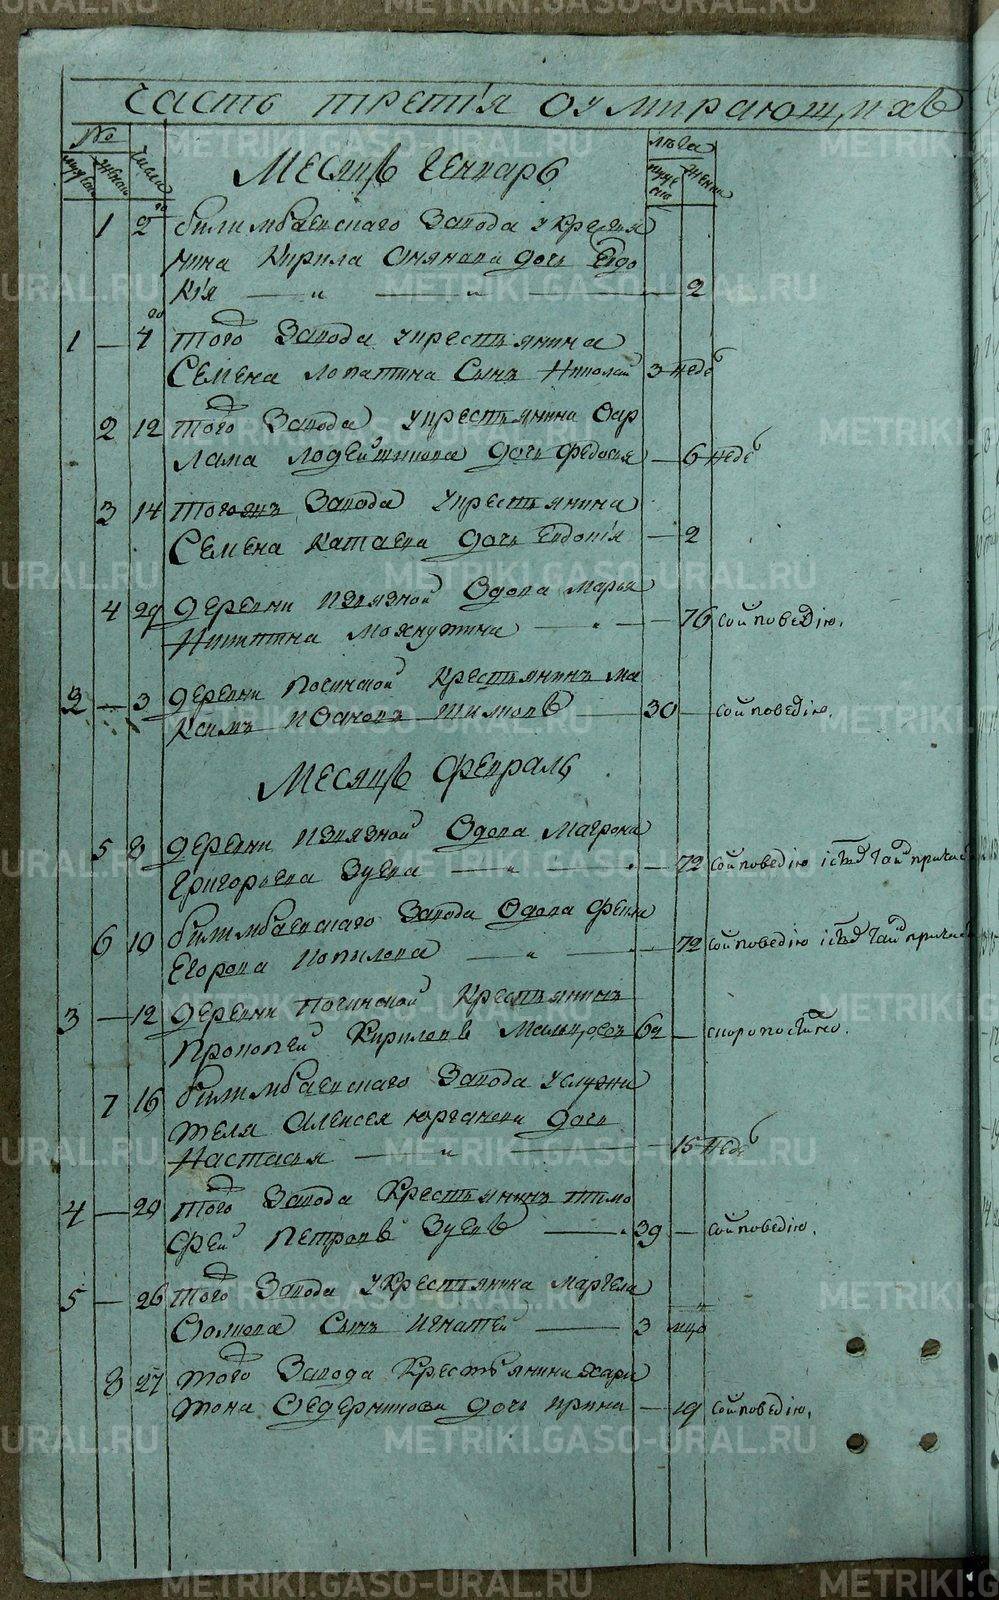 METRIKI.GASO-URAL.RU
Часть третія оумирающихъ
№
числа
мужескъ
женскъ
Месяцъ Генварь
лѣта
мужеско
женско
1 2 го билимбаевскаго завода у крестья
нина Кирила дочь Евдо
кія — „ — „ — 2
1 — 4 го того завода у крестьянина
Семена Лопатина сынъ Николай 3 неде
2 12 того завода у крестьянина Вар
лама дочь Федосья — 6 неде
3 14 тогожъ завода у крестьянина
Семена Катаева дочь Евдокія — 2
4 29 деревни Извязной вдова Марья
Никитина Махнутина — „ — 76 съ исповедію.
2 — 3 деревни Починской крестьянинъ Ма
ксимъ Ивановъ Шилковъ — 30 — съ исповедію.
Месяцъ Февраль
5 8 деревни Извязной вдова Матрона
Григорьева Зуева — „ — 72 съ исповедію і
6 10 билимбаевскаго завода вдова
Егорова Копылова — „ — 72 съ исповедію і
3 — 12 деревни Починской крестьянинъ
Прокопей Кириловъ Мальцовъ 62 — скоропостижно.
7 16 билимбаевскаго завода у служи
теля Алексея Юрганова дочь
Настасья — „ — 15 неде
4 — 20 того завода крестьянинъ Тимо
фей Петровъ Зуевъ — 39 — съ исповедію.
5 — 26 того завода у крестьянина Маркела
сынъ Игнатей — 3 мцо
8 27 того завода крестьянина Хари
тона Ведерникова дочь Ирина — 19 съ исповедію.